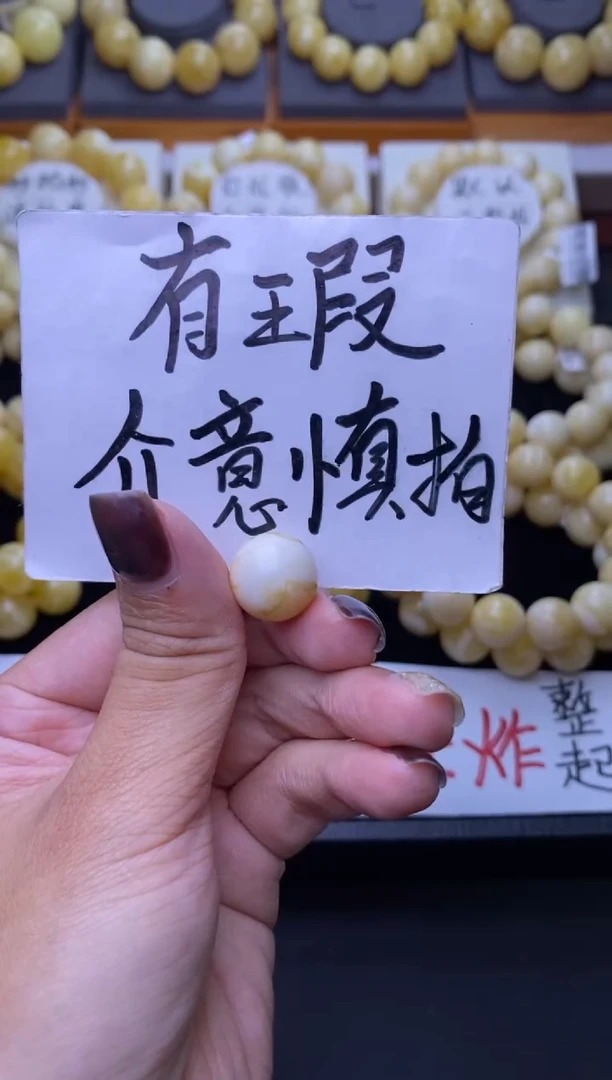 有瑕
介意慎拍
炸
整
起